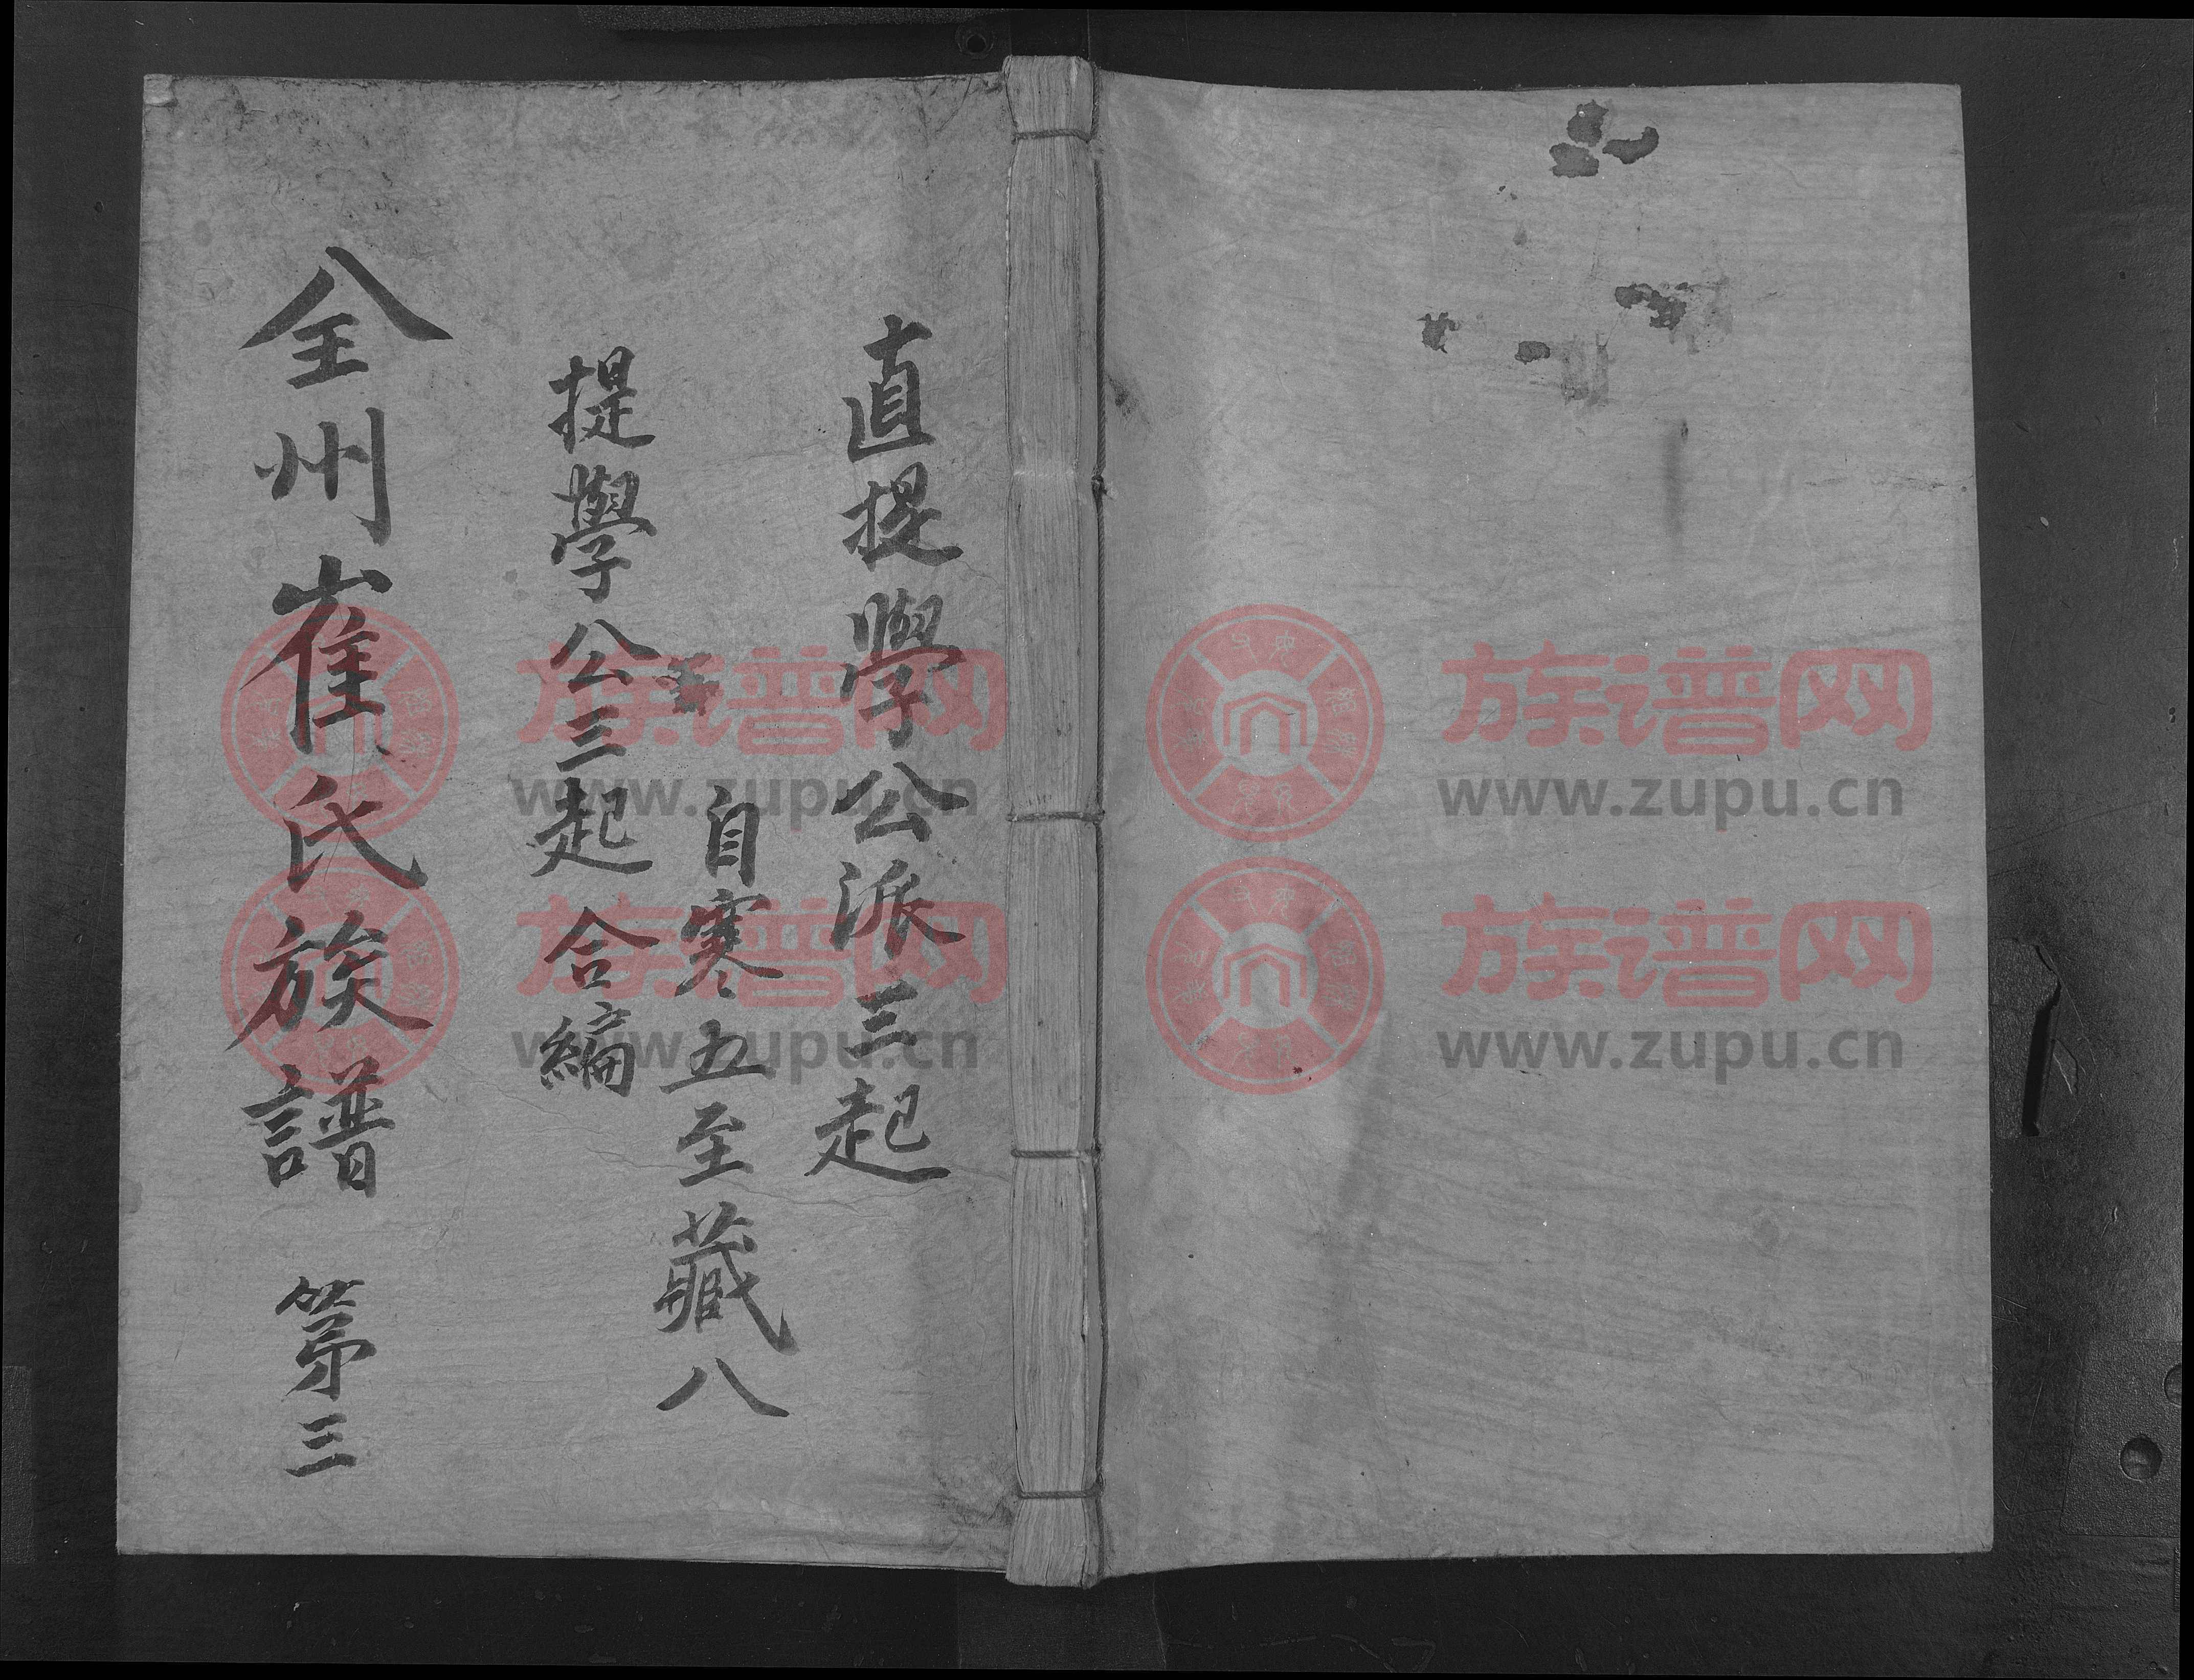 直提學公派三起
自寒五至藏八
提學公三起 合編
全州崔氏族譜 第三
族谱网
www.zupu.cn
族谱网
www.zupu.cn
族谱网
www.zupu.cn
族谱网
www.zupu.cn